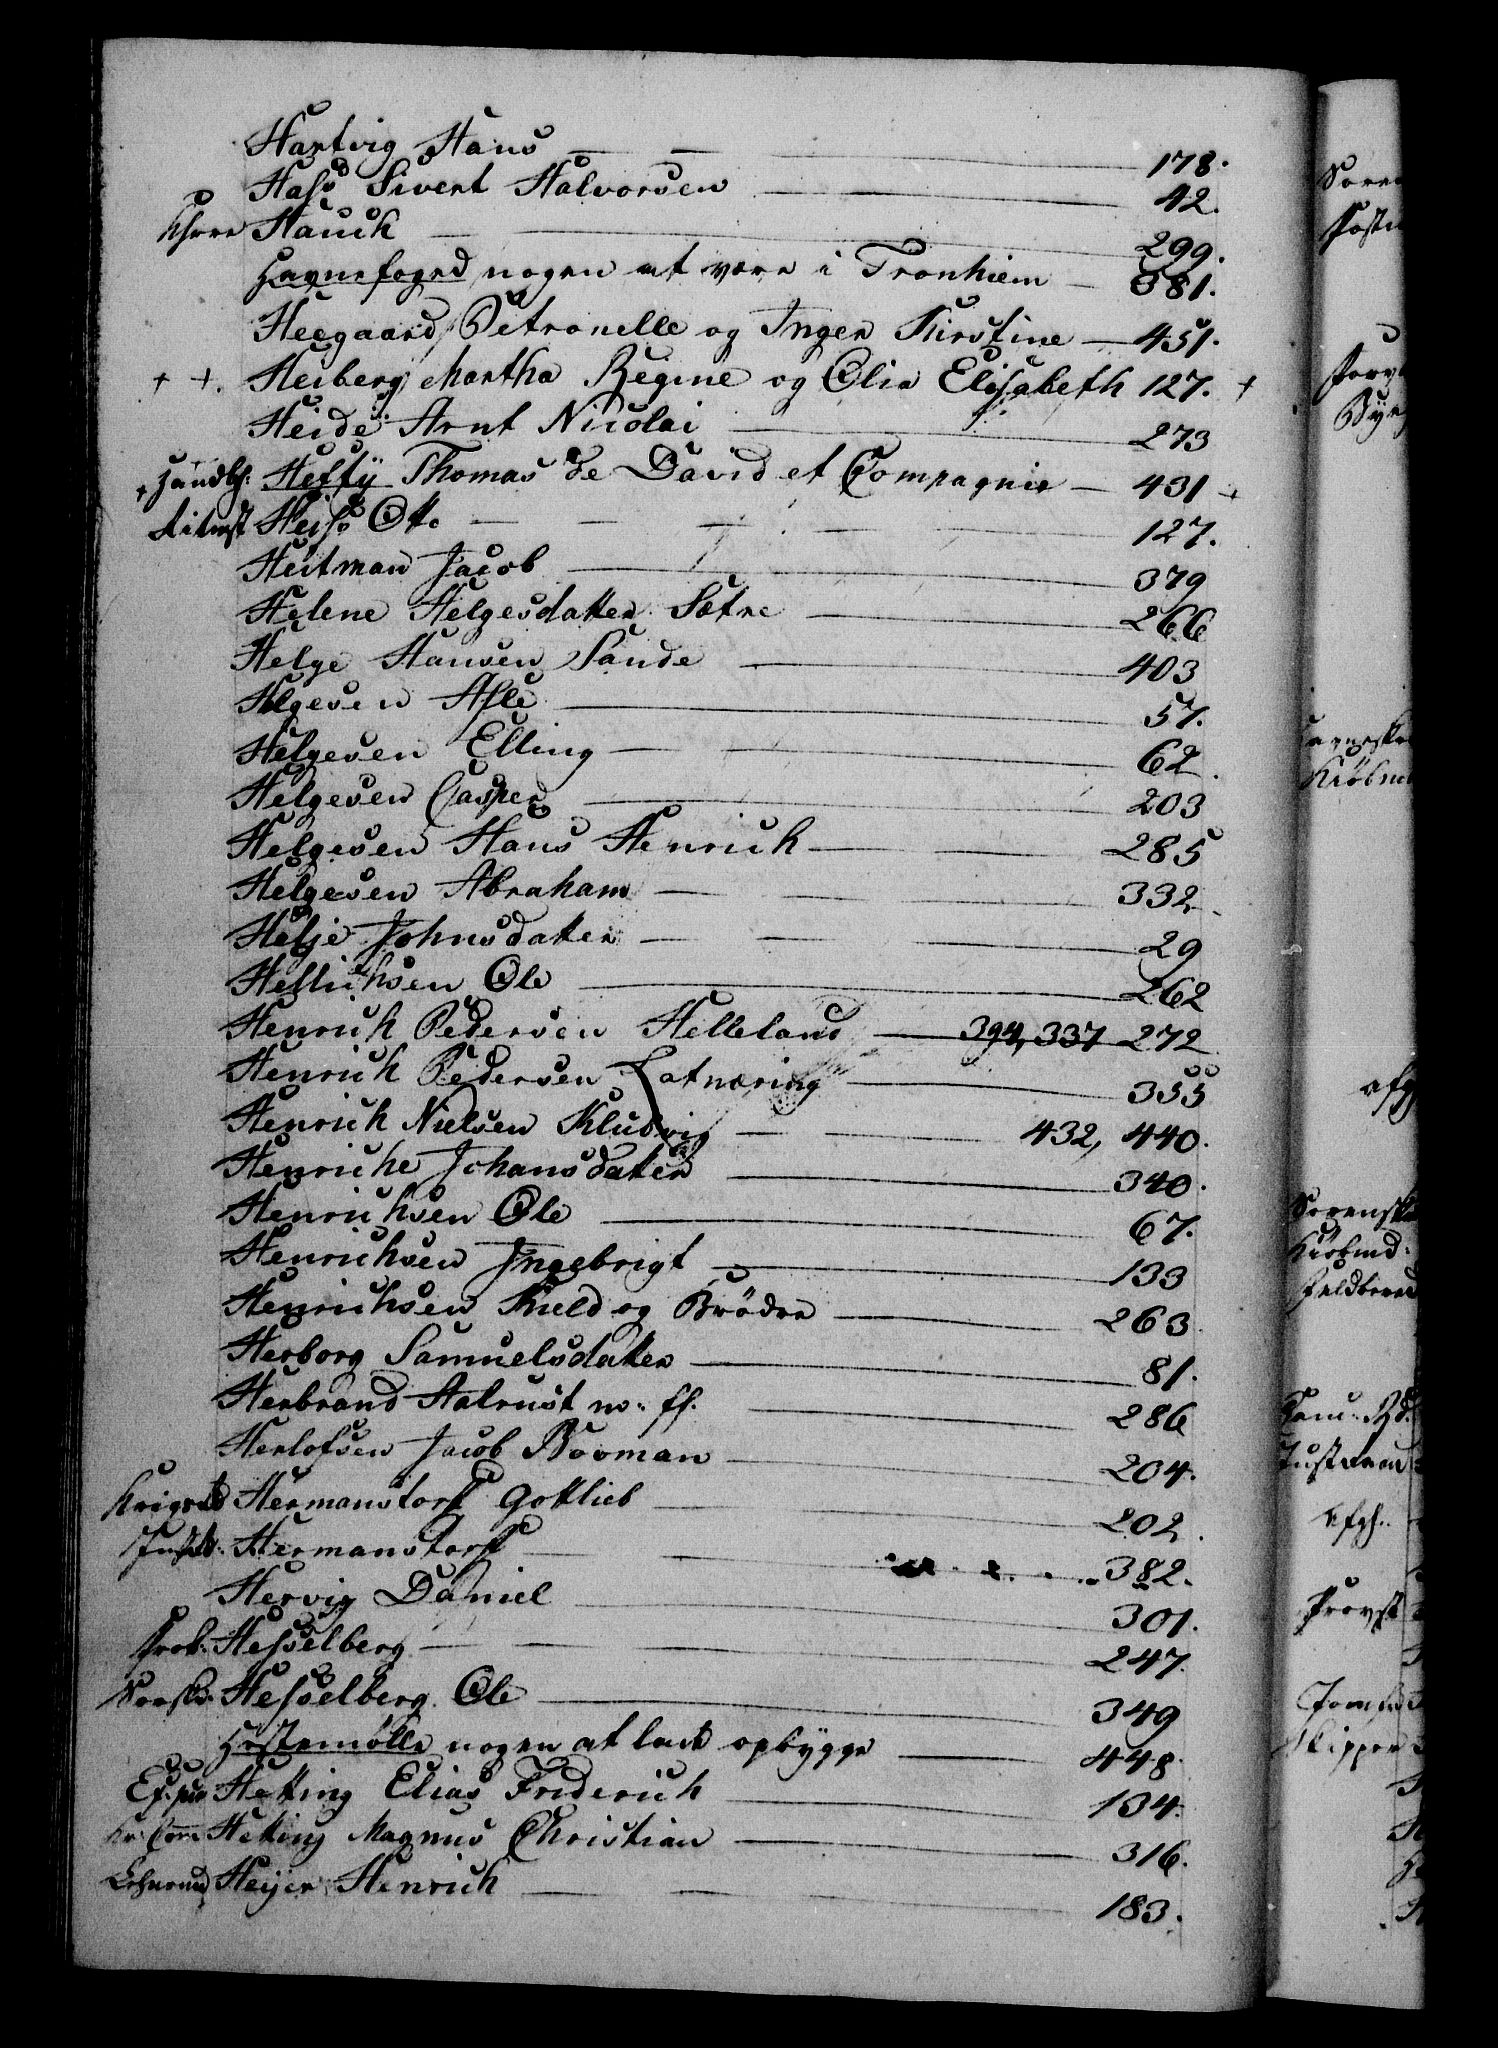 Hartvig Hans — 178.
Hass Sivert Halvorsen — 42.
Hauch — 299.
Havnefoged nogen at være i Tronhiem — 381.
Heegaard Petronelle og Inger Kirstine — 451.
+ +. Heiberg Martha Regine og Olia Elisabeth 127. +
Heide Arnt Nicolai — 273
+ Handlh: Hefty Thomas de David et Compagnie — 431 +
Ritmst Heiss Otto — 127.
Heitman Jacob — 379
Helene Helgesdatter Sætre — 266
Helge Hansen Sande — 403
Helgesen Asle — 57.
Helgesen Elling — 62.
Helgesen Casper — 203
Helgesen Hans Henrich — 285
Helgesen Abraham — 332.
Helje Johnsdatter — 29
Hellichsen Ole — 262
Henrich Pedersen Helleland — 394, 337 272
Henrich Pedersen Latnæring — 355
Henrich Nielsen Kludvig — 432, 440.
Henriche Johansdatter — 340.
Henrichsen Ole — 67.
Henrichsen Ingebrigt — 133
Henrichsen Kield og Brödre — 263.
Herborg Samuelsdatter — 81.
Herbrand Halrust m. fl. — 286
Herlofsen Jacob Booman — 204.
Krigsrd Hermanstorf Gottlieb — 202.
Justr. Hermanstorf — 382.
Hervig Daniel — 301.
Prok. Hesselberg — 247.
Sorskr. Hesselberg Ole — 349
Hestemølle nogen at lade opbygge — 448.
Hetting Elias Friderich — 134.
Hetting Magnus Christian — 316.
Heijer Henrich — 183.